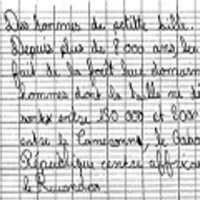 Des hommes de petite taille.
Depuis plus de 8 000 ans, leu
fait de la forêt leur domain
hommes dont la taille ne dé
sont entre 150 000 et 200
entre le Cameroun, le Gabon
République centre affricai
le Rwanda